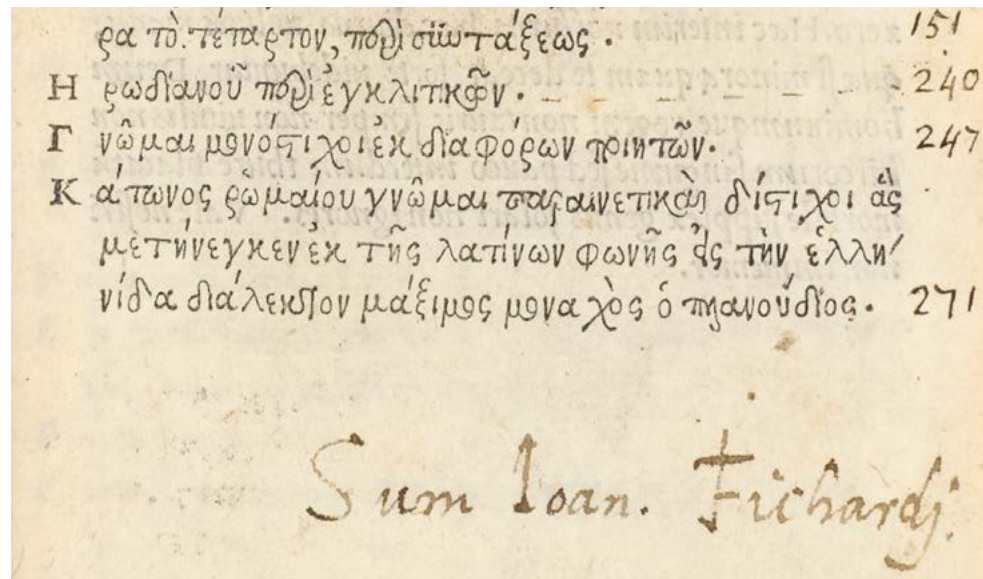 ρα τὸ. τέταρτον, περὶ σιωτάξεως. 151
Ηρωδιανοῦ περὶ ἐγκλιτικῶν. 240
Γνῶμαι μονόστιχοι ἐκ διαφόρων ποιητῶν. 247
Κάτωνος ῥωμαίου γνῶμαι παραινετικαὶ δίστιχοι ἃς
μετήνεγκεν ἐκ τῆς λατίνων φωνῆς εἰς τὴν ἑλλη/
νίδα διάλεκτον μάξιμος μοναχὸς ὁ πλανούδιος. 271
Sum Ioan. Fichardj.